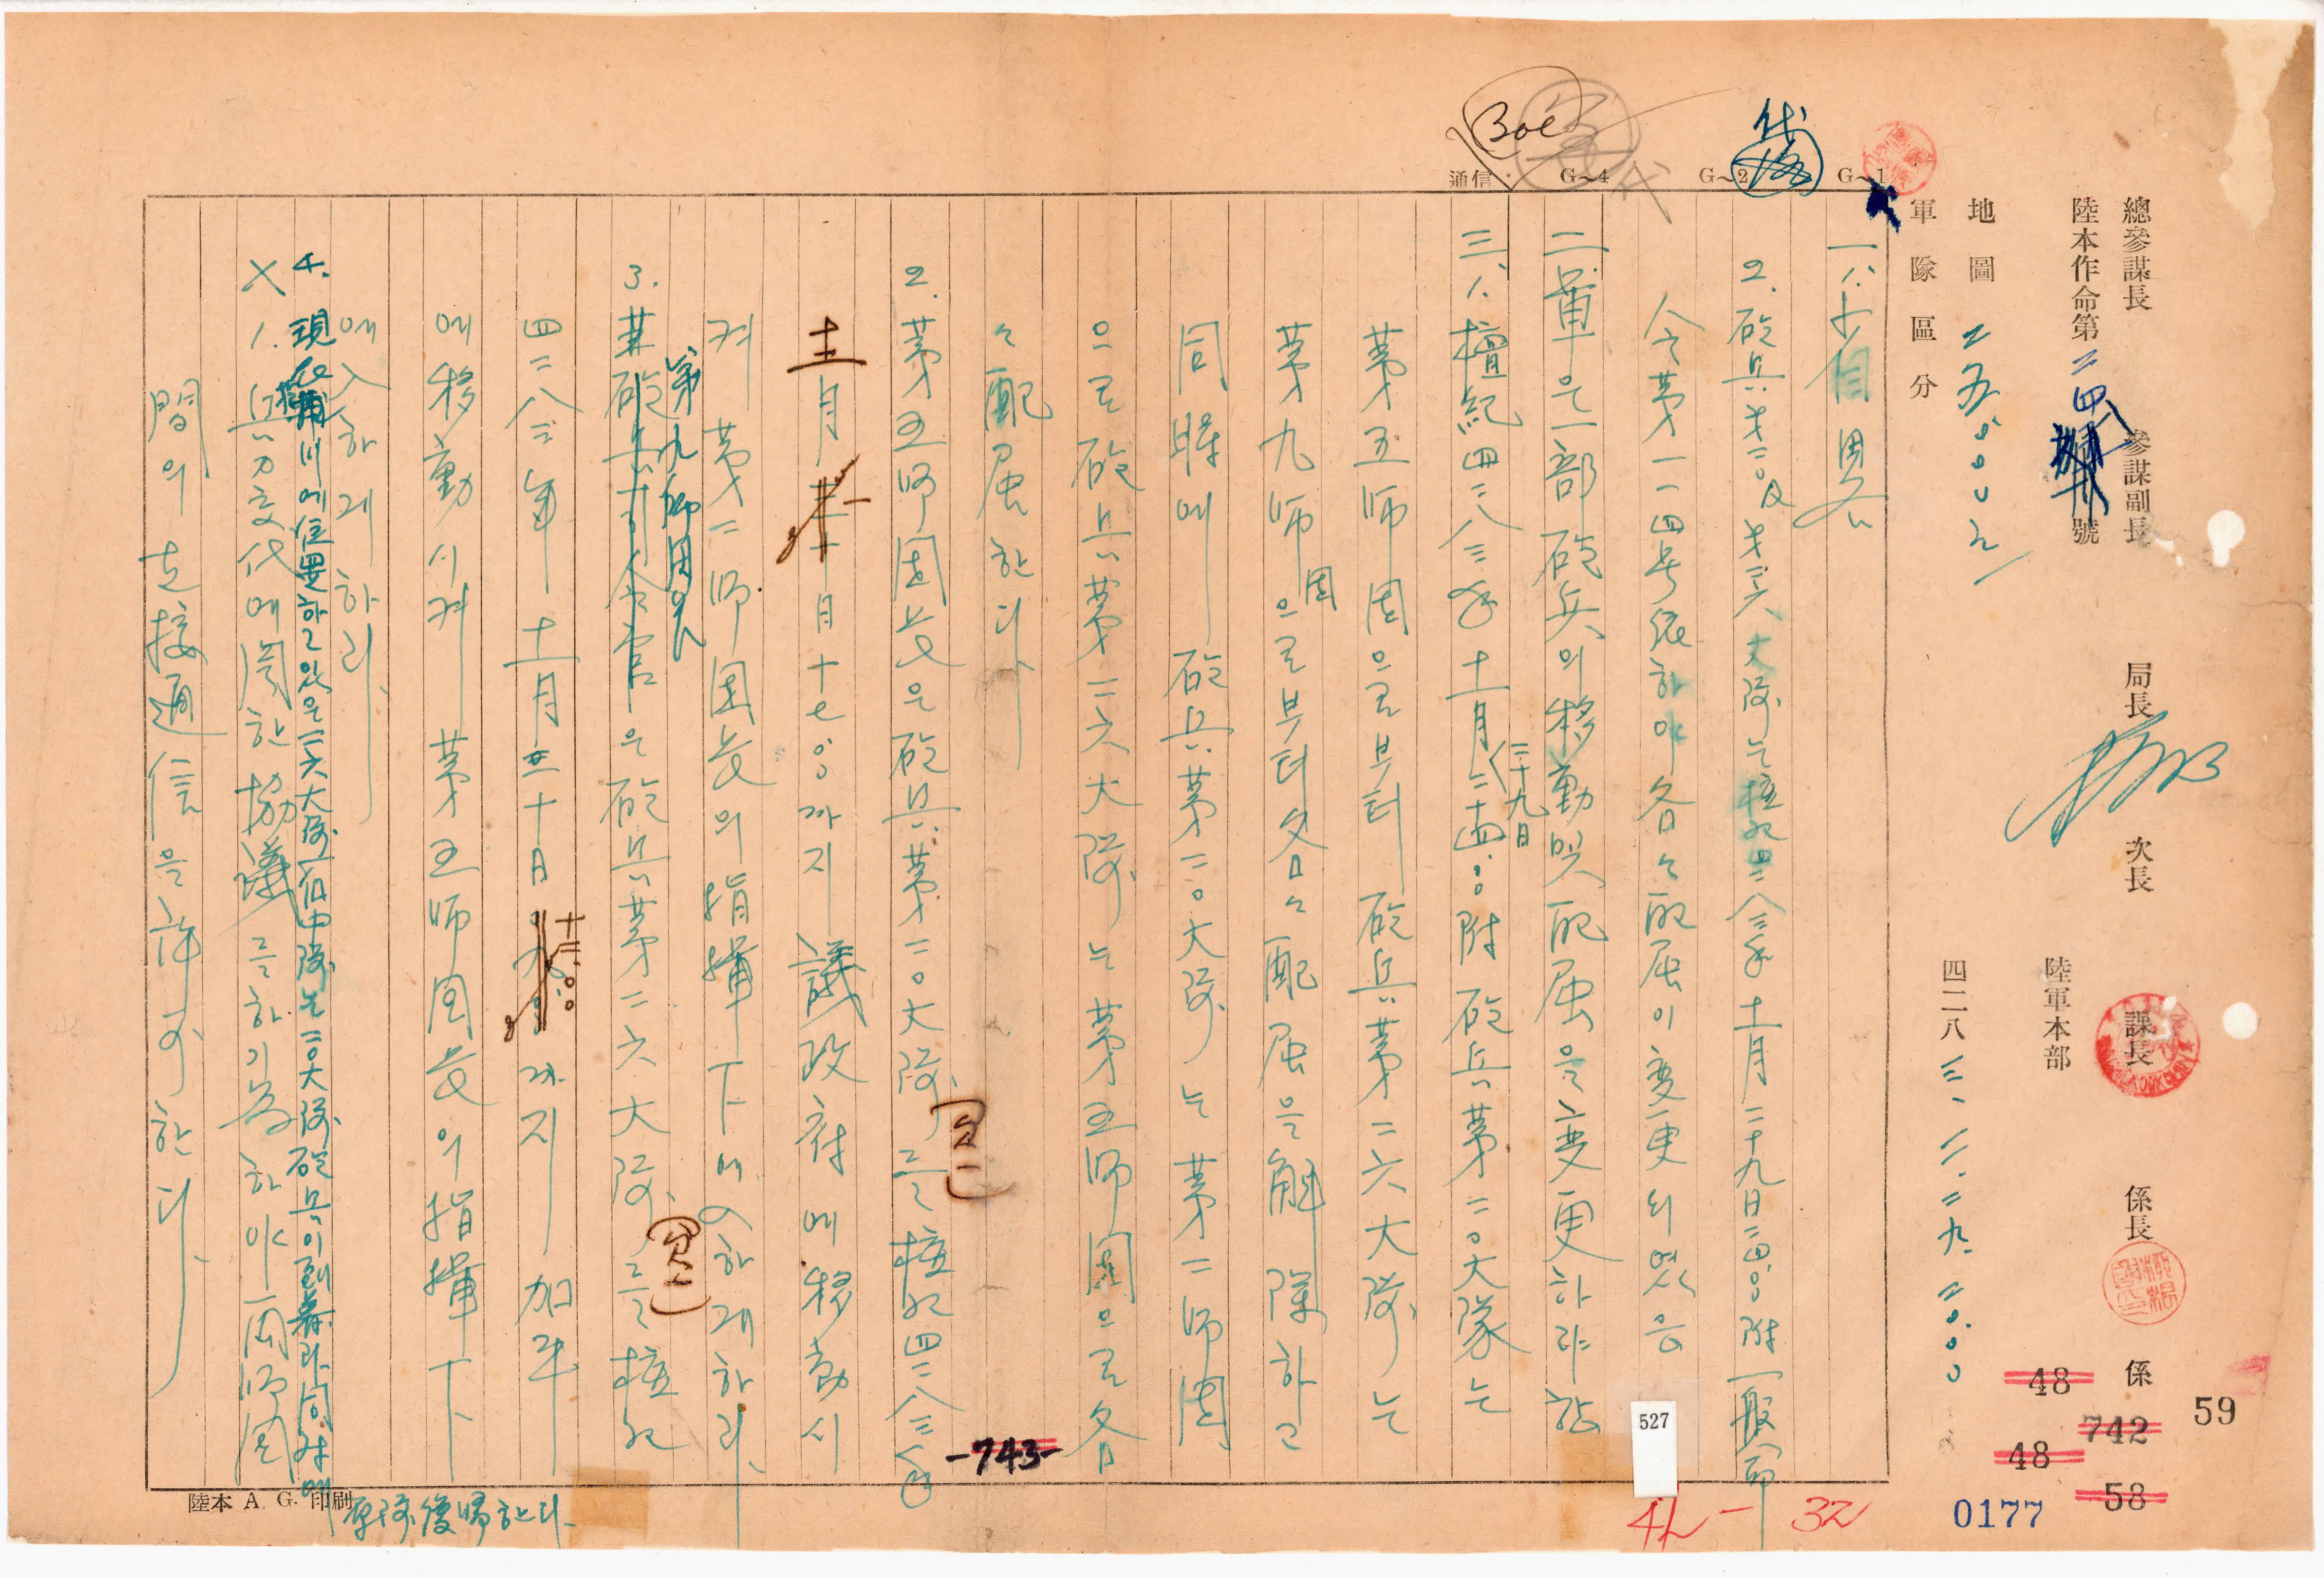 總參謀長 參謀副長 局長 次長 課長 係長 係
陸本作命第二四八號 陸軍本部
地圖 二五〇〇〇〇
四二八三.一一.二九.二〇〇〇
軍隊區分
G~1 G~2 G~4 通信
一 1.
2. 砲兵才二〇及才二六大隊는檀紀四二八三年十一月二十九日二四:〇〇附一般命
令第一一四号依하야各々配屈이変更되였음
二 軍은一部砲兵의移動与配屈을変更하랴함
三 1. 檀紀四二八三年十一月二十九日二四:〇〇附砲兵第二〇大隊는
第五師團으로부터砲兵第二六大隊는
第九師團으로부터各々配屈을解除하고
同時에砲兵第二〇大隊는第二師團
으로砲兵第二六大隊는第五師團으로各
々配屈한다
2. 第五師團長은砲兵第二〇大隊를檀紀四二八三年
十一月三十日十七:〇〇까지議政府에移動시
켜第二師團長의指揮下에入하게하라
3. 第九師團長은砲兵第二六大隊를檀紀
四二八三年十一月三十日十二:〇〇까지加平
에移動시켜第五師團長의指揮下
에入하게하라
4. 現在 川에位置하고있은二六大隊一個中隊는二〇大隊砲兵이到着과同時에
原隊復歸한다
X 1. 兵力交代에関한協議를하기為하야両師団
間의直接通信을許可한다
陸本 A. G. 印刷
-743-
527
42 - 32
0177
48
742
48
58
59